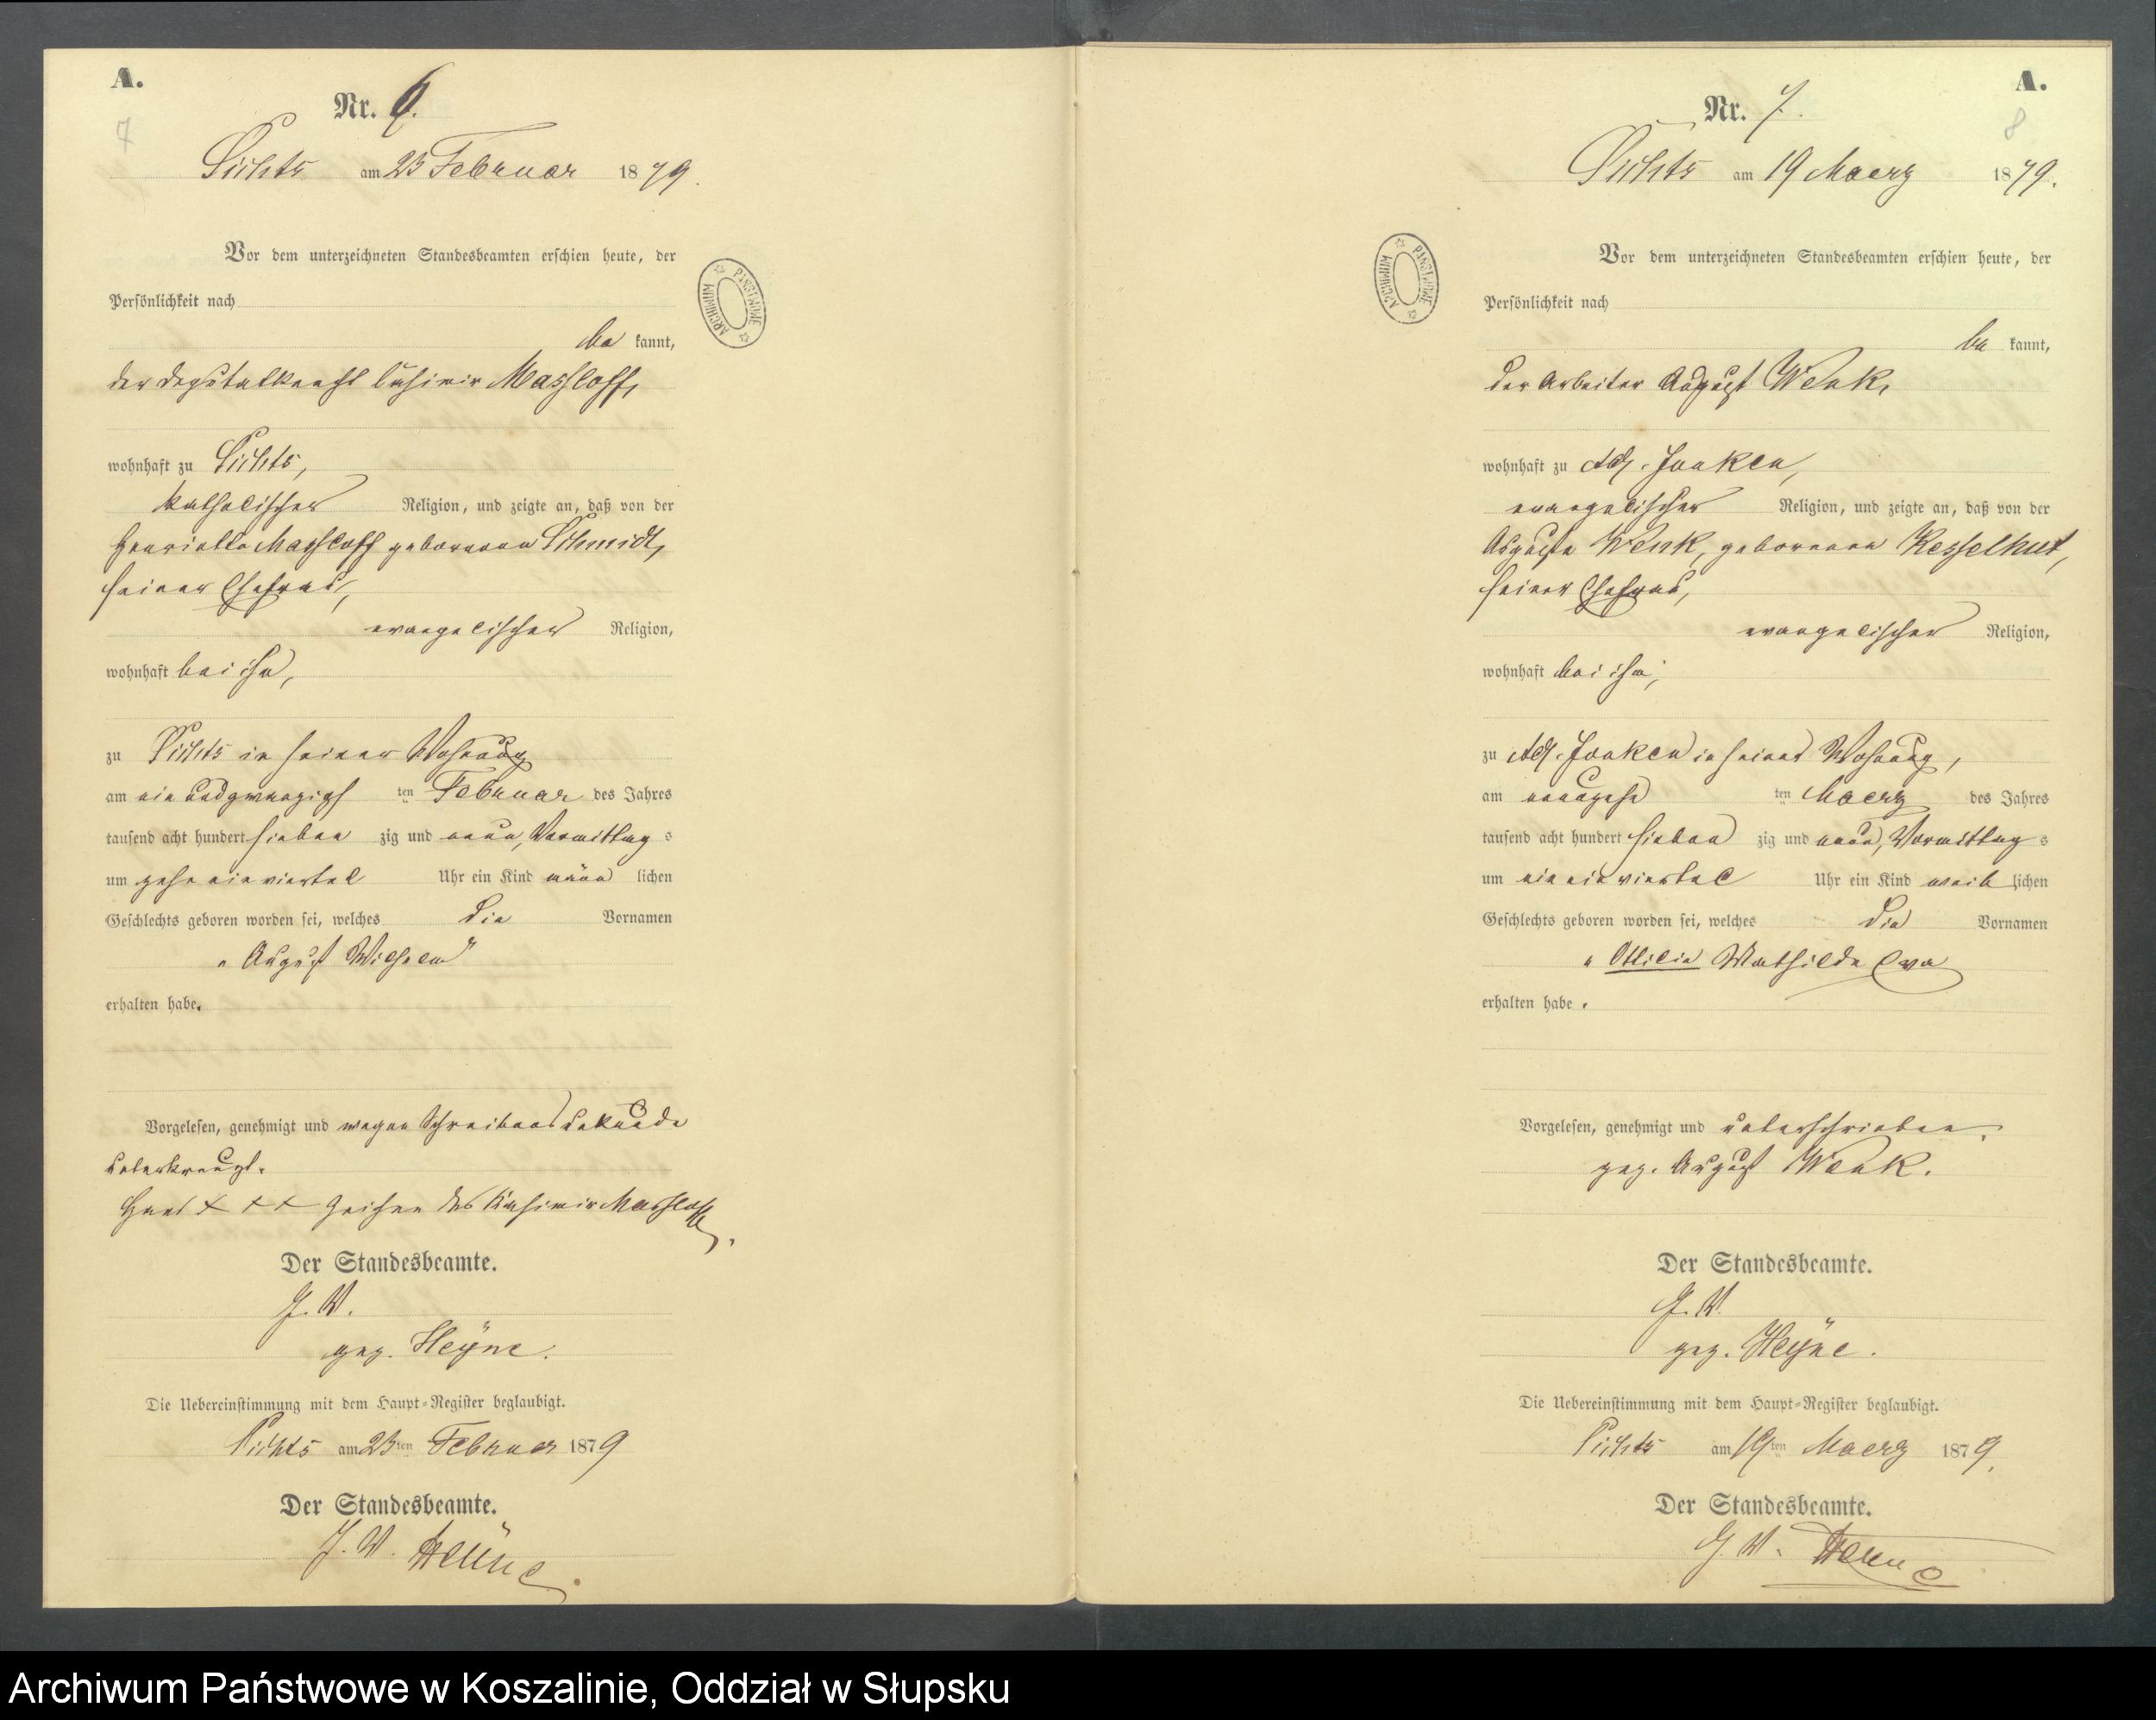 A.
7
Nr. 6.
am 23 Februar 1879.
Vor dem unterzeichneten Standesbeamten erschien heute, der
Persönlichkeit nach
be kannt,
der Deputatknecht Casimir Massloff,
wohnhaft zu
katholischer Religion, und zeigte an, daß von der
Henriette Massloff geborenen Schmidt,
seiner Ehefrau,
evangelischer Religion,
wohnhaft bei ihm,
zu in seiner Wohnung
am ein und zwanzigst ten Februar des Jahres
tausend acht hundert sieben zig und neun, Vormittag s
um zehn ein viertel Uhr ein Kind männ lichen
Geschlechts geboren worden sei, welches die Vornamen
„August Wilhelm"
erhalten habe.
Vorgelesen, genehmigt und wegen Schreibens unkunde
unterkreuzt.
Hand + + + Zeichen des Kasimir Massloff.
Der Standesbeamte.
J. V.
gez. Heyne.
Die Uebereinstimmung mit dem Haupt-Register beglaubigt.
am 23ten Februar 1879
Der Standesbeamte.
J. V. Heyne.
A.
8
Nr. 7.
am 19 Maerz 1879.
Vor dem unterzeichneten Standesbeamten erschien heute, der
Persönlichkeit nach
be kannt,
der Arbeiter August Wenk,
wohnhaft zu Adl. Jonken,
evangelischer Religion, und zeigte an, daß von der
Auguste Wenk, geborenen Kesselhut,
seiner Ehefrau,
evangelischer Religion,
wohnhaft bei ihm,
zu Adl. Jonken in seiner Wohnung,
am neunzehn ten Maerz des Jahres
tausend acht hundert sieben zig und neun, Vormittag s
um ein ein viertel Uhr ein Kind weib lichen
Geschlechts geboren worden sei, welches die Vornamen
„Ottilie Mathilde Eva
erhalten habe.
Vorgelesen, genehmigt und unterschrieben.
gez. August Wenk.
Der Standesbeamte.
J. V.
gez. Heyne.
Die Uebereinstimmung mit dem Haupt-Register beglaubigt.
am 19ten Maerz 1879.
Der Standesbeamte.
J. V. Heyne
ARCHIWUM PAŃSTWOWE
ARCHIWUM PAŃSTWOWE
Archiwum Państwowe w Koszalinie, Oddział w Słupsku